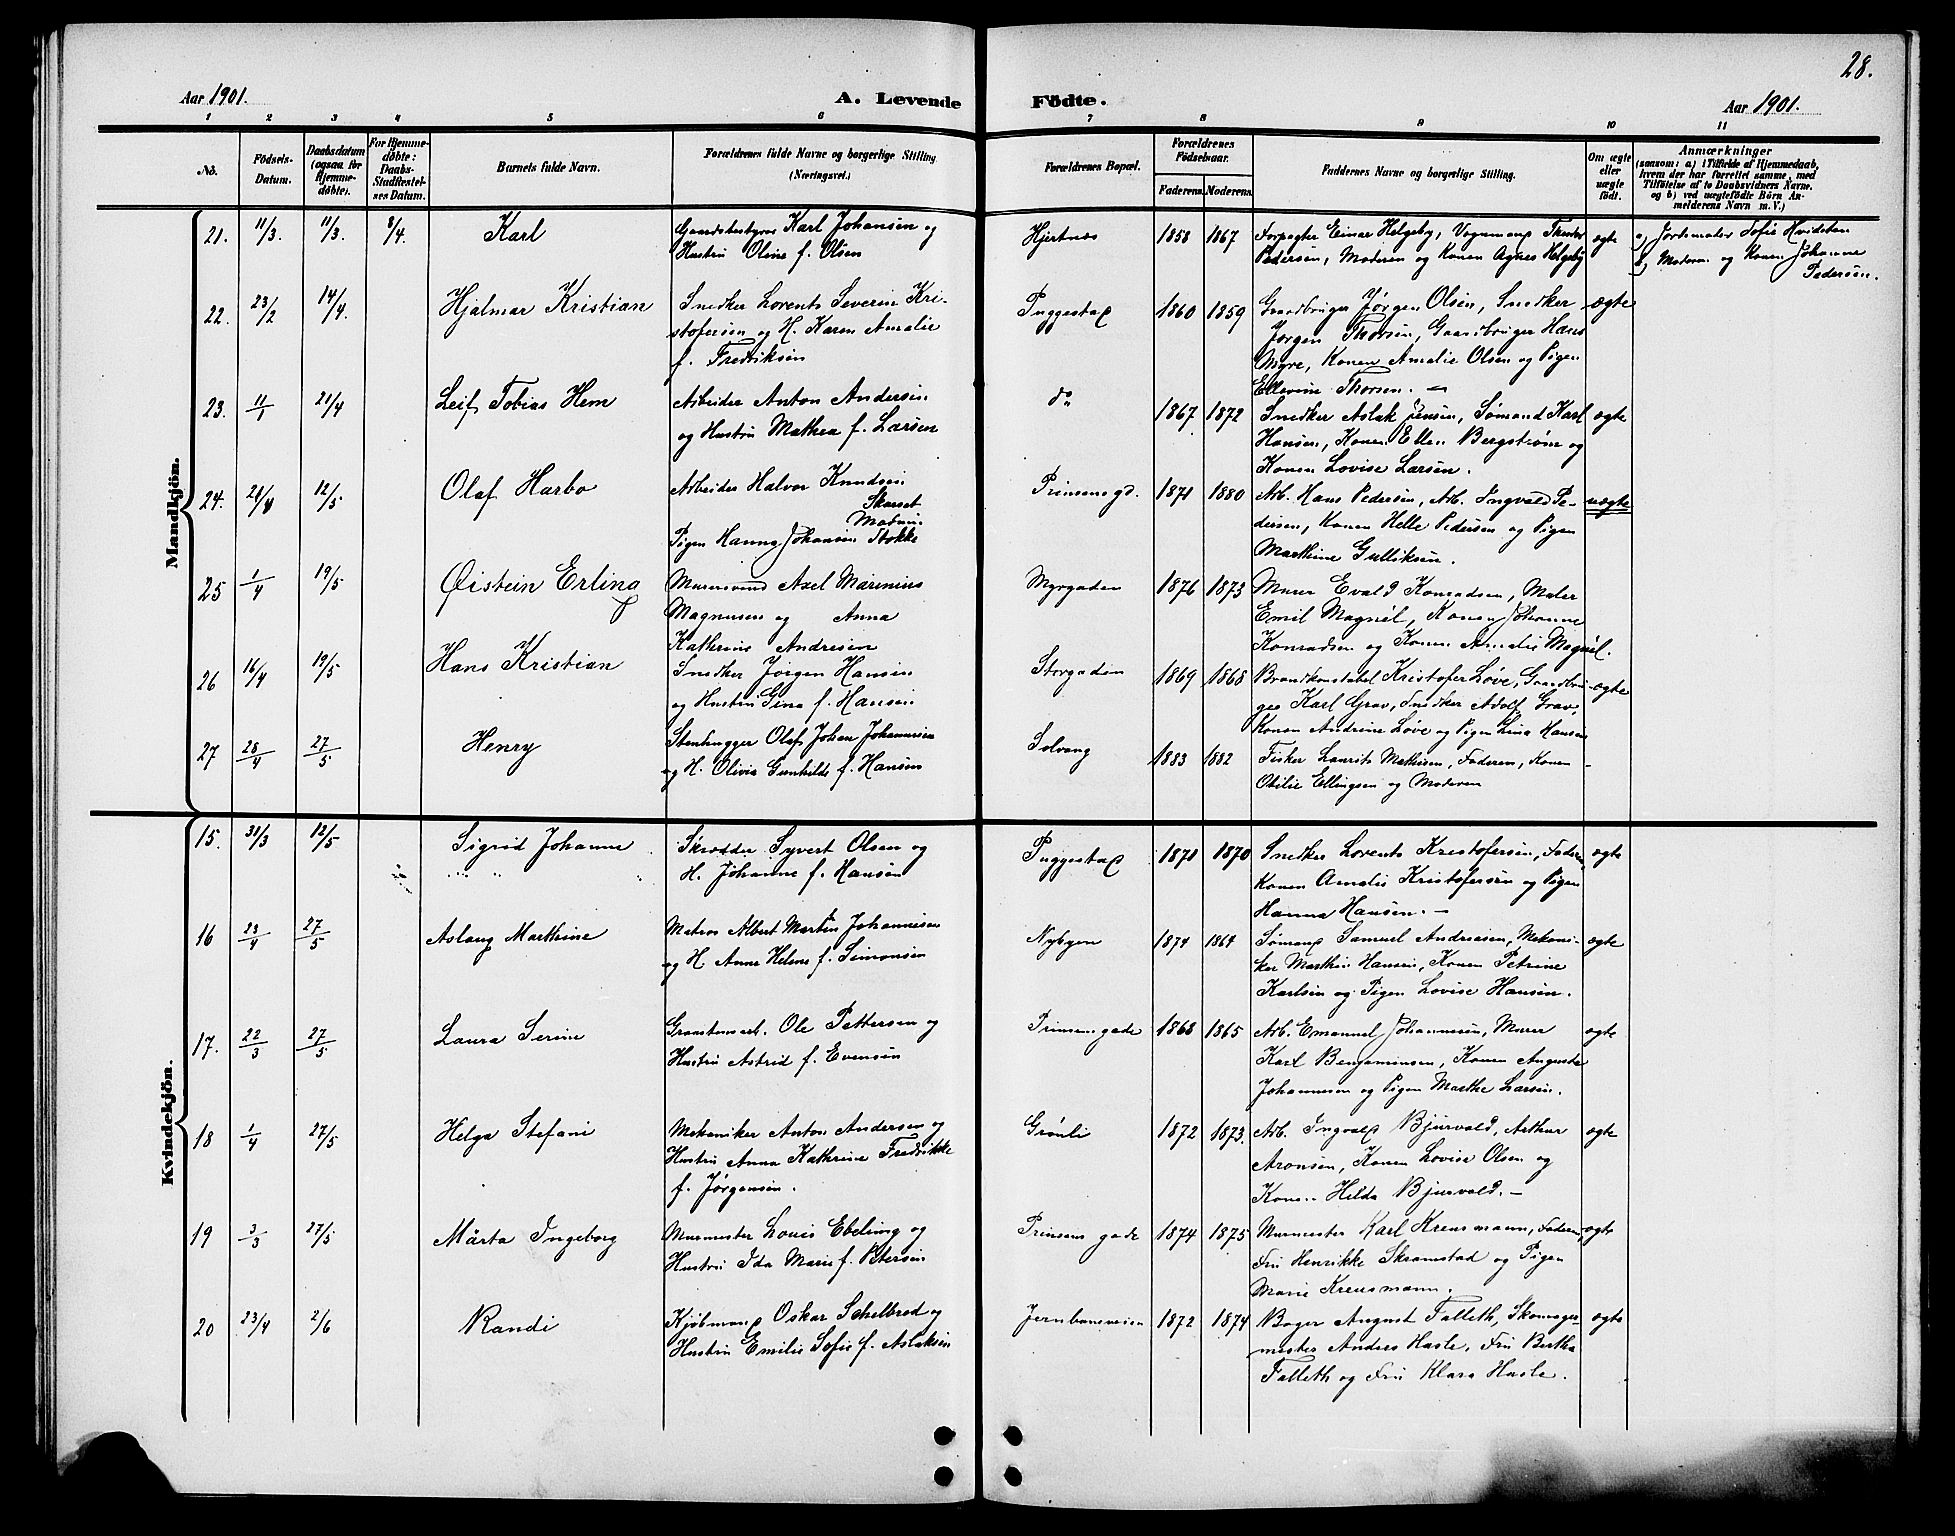 28.
Aar 1901.
A. Levende Födte.
Aar 1901.
1 2 3 4 5 6 7 8 9 10 11
No.
Födsels-Datum.
Daabsdatum (ogsaa for Hjemmedöbte).
For Hjemmedöbte: Daabs-Stadfæstelses Datum.
Barnets fulde Navn.
Forældrenes fulde Navne og borgerlige Stilling.
(Næringsvei.)
Forældrenes Bopæl.
Forældrenes Födselsaar.
Faderens. Moderens.
Faddernes Navne og borgerlige Stilling.
Om ægte eller uægte födt.
Anmærkninger
(saasom: a) i Tilfælde af Hjemmedaab, hvem der har forrettet samme, med Tilföielse af to Daabsvidners Navne, og b) ved uægtefödte Börn Anmelderens Navn m. V.)
Mandkjön.
21. 11/3. 11/3. 8/4. Karl
Gaardsbestyrer Karl Johansen og
Hustru Oline f. Olsen
Hjertnes 1858 1867
Forpagter Einar Helgeby, Vognmand Teodor
Pedersen, Moderen og Konen Agnes Helgeby
ægte
a) Jordemoder Sofie Hvidsten
b) Moderen og Konen Johanne
Pedersen.
22. 23/2 14/4. Hjalmar Kristian
Snedker Lorents Severin Kri-
stofersen og H. Karen Amalie
f. Fredriksen
Puggestad 1860 1859
Gaardbruger Jørgen Olsen, Snedker
Jørgen Thorsen, Gaardbruger Hans
Myre, Konen Amalie Olsen og Pigen
Ellevine Thorsen. —
ægte
23. 11/1 21/4 Leif Tobias Hem
Arbeider Anton Andersen
og Hustru Mathea f. Larsen
do 1867 1872
Snedker Aslak Jensen, Sømand Karl
Hansen, Konen Ellen Bergstrøm og
Konen Lovise Larsen.
ægte
24. 12/5 Olaf Harbo
Arbeider Halvor Knudsen
Pigen Hanna Johansen Stokke
Prinsens gd. 1871 1880
Arb. Hans Pedersen, Arb. Ingvald Pe-
dersen, Konen Helle Pedersen og Pigen
Marthine Gulliksen.
uægte
25 1/4 19/5 Øistein Erling
Murersvend Axel Marinius
Magnusen og Anna
Kathrine Andresen
Myrgaden 1876 1873
Murer Evald Konradsen, Maler
Emil Magnél, Konen Johanne
Konradsen og Konen Amalie Magnél.
26 16/4 19/5 Hans Kristian
Snedker Jørgen Hansen
og Hustru Gina f. Hansen
Storgaden 1869 1868
Brandkonstabel Kristofer Løve, Gaardbru-
ger Karl Grav, Snedker Adolf Grav,
Konen Andrine Løve og Pigen Lina Hansen
ægte
27 28/4 27/5 Henry
Stenhugger Olaf Johan Johannesen
og H. Olivia Gunhilde f. Hansen
Solvang 1883 1882
Fisker Laurits Mathisen, Faderen, Konen
Otilie Ellingsen og Moderen
Kvindekjön.
15. 31/3 12/5 Sigrid Johanne
Skrædder Syvert Olsen og
H. Johanne f. Hansen
Puggestad 1871 1870
Snedker Lorents Kristofersen, Faderen,
Konen Amalie Kristofersen og Pigen
Hanna Hansen. —
ægte
16 23/4 27/5 Aslaug Marthine
Matros Albert Martin Johannesen
og H. Anne Helene f. Simonsen
Nybyen 1874 1864
Sømand Samuel Andreasen, Mekani-
ker Marthin Hansen, Konen Petrine
Karlsen og Pigen Lovise Hansen.
ægte
17. 22/3 27/5 Laura Serine
Graastensarb. Ole Pettersen og
Hustru Astrid f. Evensen
Prinsens gade 1868 1865
Arb. Emanuel Johannesen, Murer
Karl Benjaminsen, Konen Augusta
Johannesen og Pigen Marthe Larsen.
ægte
18 1/4 27/5 Helga Stefani
Mekaniker Anton Andersen og
Hustru Anna Kathrine Fredrikke
f. Jørgensen.
Grønli 1872 1873.
Arb. Ingvald Bjurvald, Arthur
Aronsen, Konen Lovise Olsen og
Konen Hilda Bjurvald. —
ægte
19 3/3 27/5 Märta Ingeborg
Murmester Louis Ebeling og
Hustru Ida Marie f. Petersen
Prinsens gade 1874 1875
Murmester Karl Krensmann, Faderen,
Fru Henrikke Skramstad og Pigen
Marie Krensmann.
ægte
20 23/4 2/6 Randi
Kjøbmand Oskar Schelbred og
Hustru Emilie Sofie f. Aslaksen
Jernbaneveien 1872 1874
Bager August Falleth, Skomager-
mester Andres Hasle, Fru Bertha
Falleth og Fru Klara Hasle.
ægte